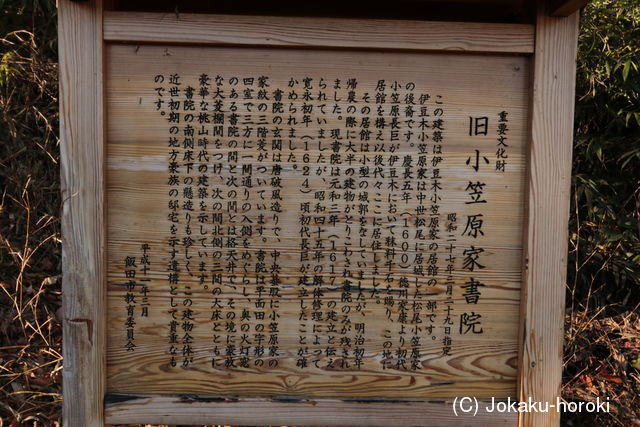 重要文化財
旧小笠原家書院
昭和二十七年三月二十九日指定
この建築は伊豆木小笠原家の居館の一部です。
伊豆木小笠原家は中世松尾に居城した松尾小笠原家
の後裔です。慶長五年(1600)徳川家康より初代
小笠原長巨が伊豆木において釆料千石を賜り、この地に
居館を構え以後代々ここに居住しました。
その居館は小型の城郭をなしていましたが、明治初年
帰農の際に大半の建物がとりこわされ書院のみが残され
ました。現書院は元和三年(1617)の建立と伝え
られていましたが、昭和四十五年の解体修理によって
寛永初年(1624)頃初代長巨が建立したことが確
かめられました。
書院の玄関は唐破風造りで、中央蟇股に小笠原家の
家紋の三階菱がついています。書院は平面田の字形の
四室で三方に一間通りの入側をめぐらし、奥の火灯窓
のある書院の間と次の間とは格天井で、その境に豪放
な大菱欄間をつけ、次の間北側の三間の大床とともに
豪華な桃山時代の建築を示しています。
書院の南側床下の懸造りも珍しく、この建物全体が
近世初期の地方豪族の邸宅を示す遺構として貴重なも
のです。
平成十一年三月
飯田市教育委員会
(C) Jokaku-horoki